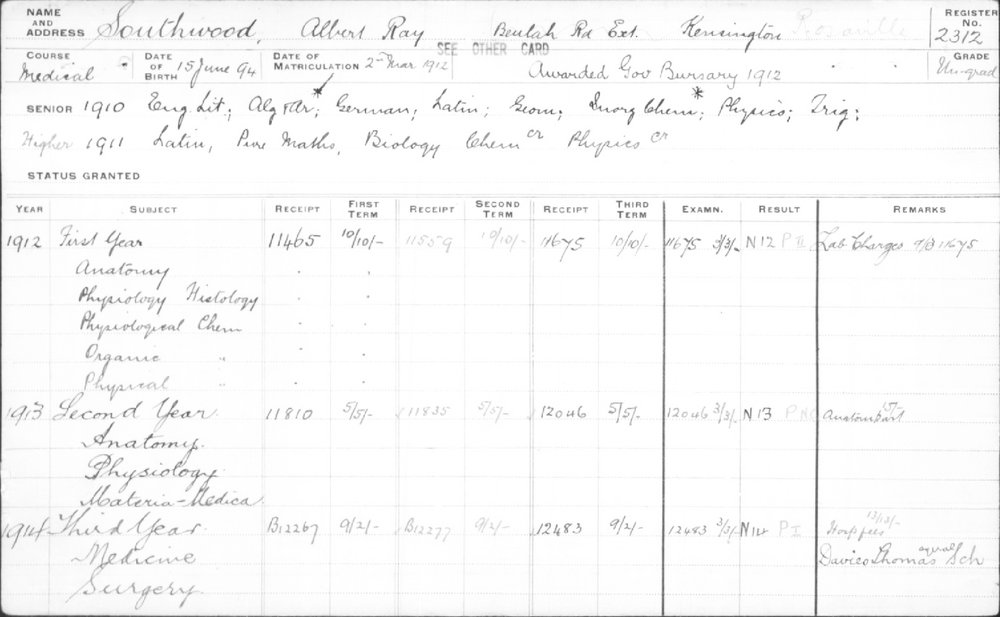 NAME AND ADDRESS Southwood, Albert Ray Beulah Rd Ext. Kensington REGISTER No. 2312
SEE OTHER CARD
COURSE Medical DATE OF BIRTH 15 June 94 DATE OF MATRICULATION 2nd Mar 1912 Awarded Gov Bursary 1912 GRADE Un-grad
SENIOR 1910 Eng. Lit; Alg + Ar*; German; Latin; Geom; Inorg Chem*; Physics; Trig;
Higher 1911 Latin, Pure Maths, Biology Chem cr Physics cr
STATUS GRANTED
YEAR SUBJECT RECEIPT FIRST TERM RECEIPT SECOND TERM RECEIPT THIRD TERM EXAMN. RESULT REMARKS
1912 First Year 11465 10/10/- 11559 10/10/- 11675 10/10/- 11675 3/3/- N12 P II Lab Charges 11675
Anatomy " "
Physiology Histology " "
Physiological Chem " "
Organic " " "
Physical " " "
1913 Second Year 11810 5/5/- 11835 5/5/- 12046 5/5/- 12046 3/3/- N13 P Anatom part
Anatomy
Physiology
Materia-Medica
1914 Third Year B12267 9/2/- B12277 9/2/- 12483 9/2/- 12483 3/3/- N14 P I Hosp fees 13/13/-
Medicine Davies Thomas Sch
Surgery